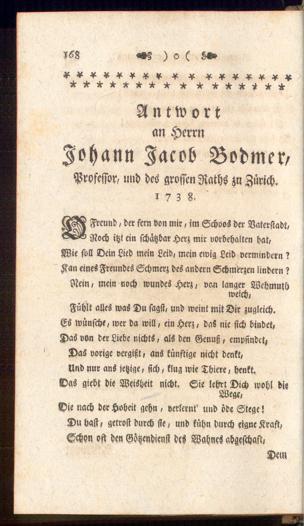 168 ) o (
Antwort
an Herrn
Johann Jacob Bodmer,
Professor, und des grossen Raths zu Zürich.
1738.
O Freund, der fern von mir, im Schoos der Vaterstadt,
Noch itzt ein schätzbar Herz mir vorbehalten hat,
Wie soll Dein Leid mein Leid, mein ewig Leid vermindern?
Kan eines Freundes Schmerz des andern Schmerzen lindern?
Nein, mein noch wundes Herz, von langer Wehmuth
weich,
Fühlt alles was Du sagst, und weint mit Dir zugleich.
Es wünsche, wer da will, ein Herz, das nie sich bindet,
Das von der Liebe nichts, als den Genuß, empfindet,
Das vorige vergißt, ans künftige nicht denkt,
Und nur ans jetzige, sich, klug wie Thiere, henkt.
Das giebt die Weisheit nicht. Sie lehrt Dich wohl die
Wege,
Die nach der Hoheit gehn, verlernt und öde Stege!
Du hast, getrost durch sie, und kühn durch eigne Kraft,
Schon oft den Götzendienst des Wahnes abgeschaft,
Dem